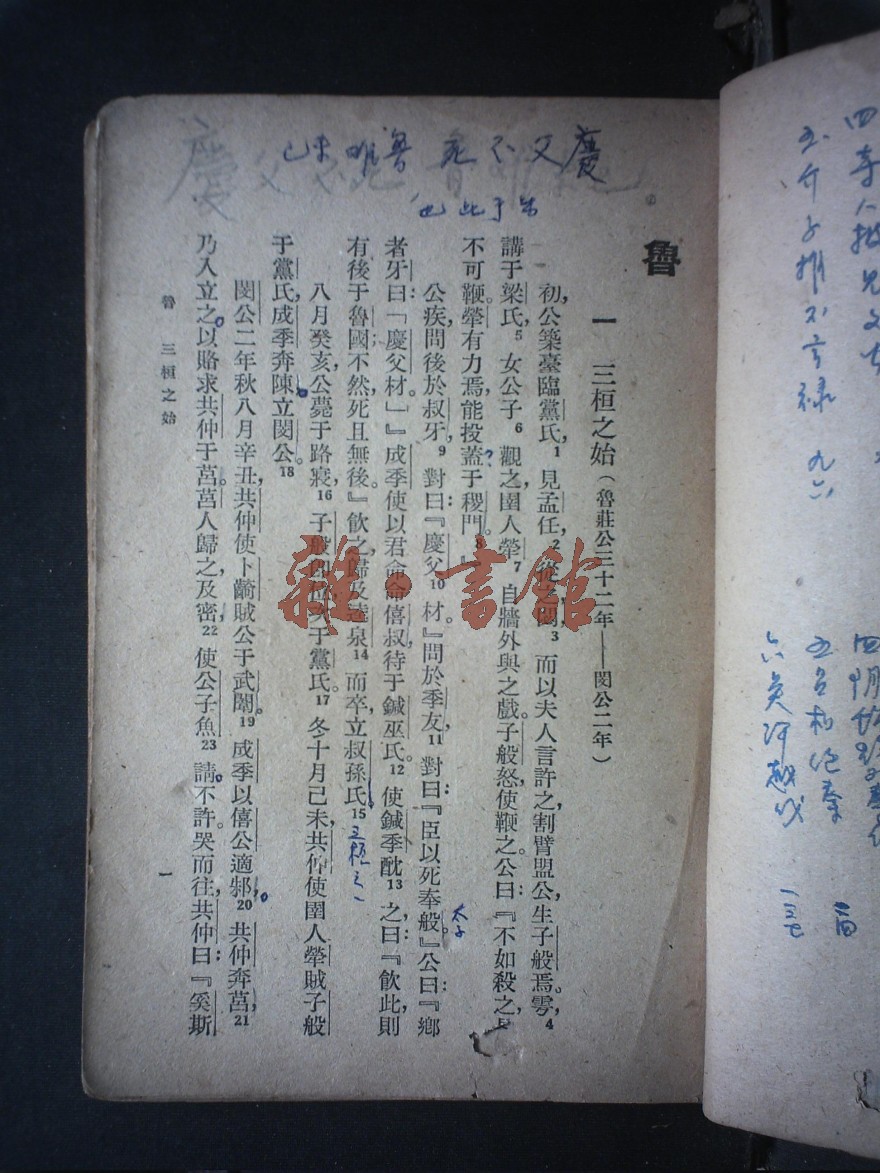 慶父不死魯難未已
出于此也
魯
一 三桓之始(魯莊公三十二年——閔公二年)
初,公築臺臨黨氏,1 見孟任,2 從之閟,3 而以夫人言許之,割臂盟公,生子般焉。雩,4
講于梁氏,5 女公子 6 觀之,圉人犖 7 自牆外與之戲。子般怒,使鞭之。公曰:『不如殺之,是
不可鞭。犖有力焉,能投蓋于稷門。8』
公疾,問後於叔牙,9 對曰:『慶父 10 材。』問於季友,11 對曰:『臣以死奉般。』公曰:『鄉
者牙曰「慶父材。」』成季使以君命命僖叔,待于鍼巫氏,12 使鍼季酖 13 之,曰:『飲此,則
有後于魯國;不然,死且無後。』飲之,歸,及逵泉 14 而卒,立叔孫氏。15
三桓之一
太子
八月癸亥,公薨于路寢,16 子般即位,次于黨氏。17 冬十月己未,共仲使圉人犖賊子般
于黨氏,成季奔陳,立閔公。18
閔公二年秋八月辛丑,共仲使卜齮賊公于武闈。19 成季以僖公適邾,20 共仲奔莒,21
乃入,立之。以賂求共仲于莒,莒人歸之,及密,22 使公子魚 23 請。不許,哭而往,共仲曰:『奚斯
魯 三桓之始
一
雜·書館
五 介子推不言祿 九六
五 呂相絕秦